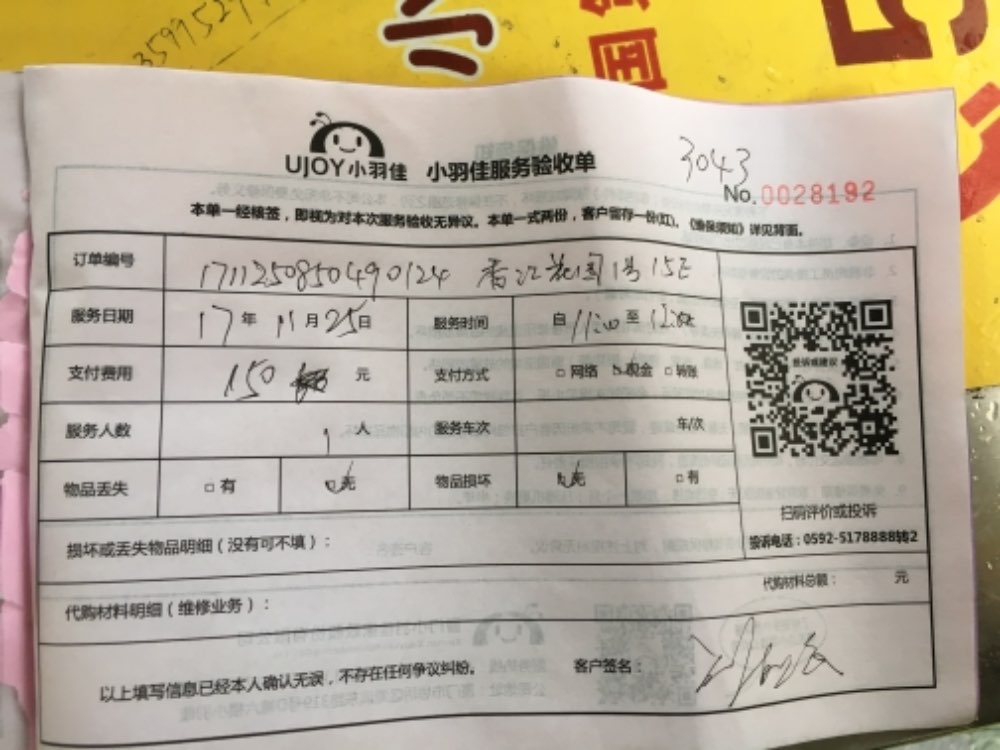 359952
小
国
UJOY小羽佳 小羽佳服务验收单
3043
No.0028192
本单一经核签，即视为对本次服务验收无异议。本单一式两份，客户留存一份(红)。《维保须知》详见背面。
订单编号 1711250850490124 香江花园1号15E
服务日期 17年11月25日 服务时间 自11:00至12:00
支付费用 150 元 支付方式 □网络 现金 □转账
服务人数 1人 服务车次 车/次
物品丢失 □有 无 物品损坏 无 □有
投诉或建议
扫码评价或投诉
投诉电话：0592-5178888转2
损坏或丢失物品明细（没有可不填）：
代购材料总额： 元
代购材料明细（维修业务）：
以上填写信息已经本人确认无误，不存在任何争议纠纷。 客户签名：